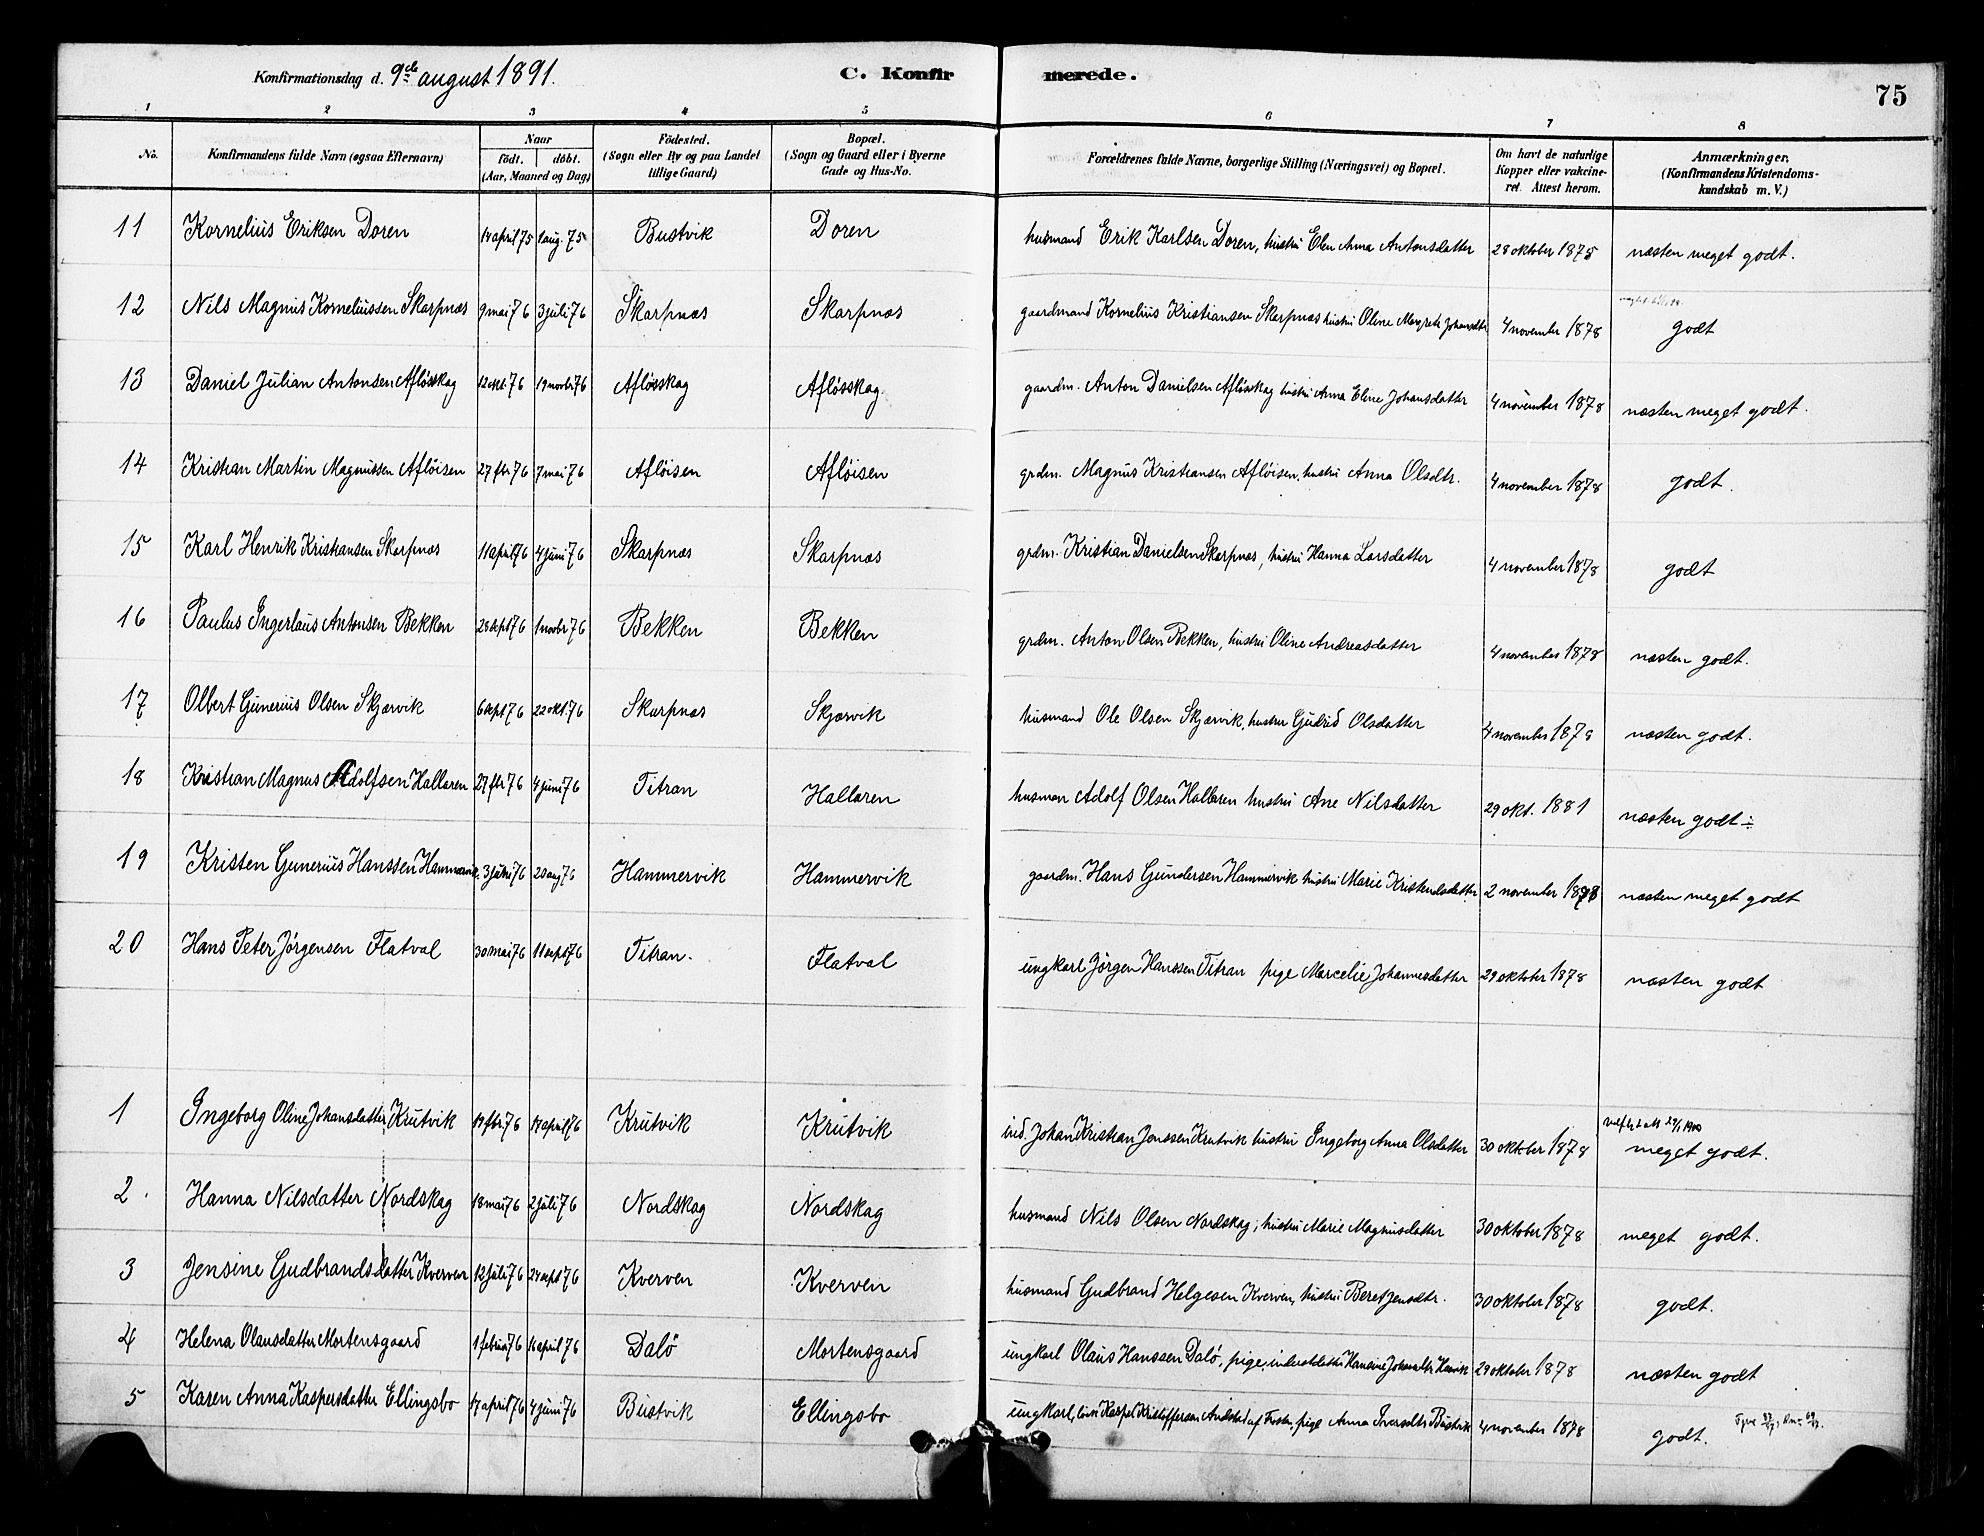 Konfirmationsdag d. 9de august 1891.
C. Konfirmerede.
75
1 2 3 4 5 6 7 8
No. Konfirmandens fulde Navn (ogsaa Efternavn) Naar födt. döbt. (Aar, Maaned og Dag) Födested. (Sogn eller By og paa Landet tillige Gaard) Bopæl. (Sogn og Gaard eller i Byerne Gade og Hus-No. Forældrenes fulde Navne, borgerlige Stilling (Næringsvei) og Bopæl. Om havt de naturlige Kopper eller vakcineret. Attest herom. Anmærkninger. (Konfirmandens Kristendomskundskab m. V.)
11 Kornelius Eriksen Doren 14 april 75 1 aug. 75 Bustvik Doren husmand Erik Karlsen Doren, hustru Elen Anna Antonsdatter 28 oktober 1875 næsten meget godt.
12 Nils Magnus Korneliussen Skarpnæs 9 mai 76 3 juli 76 Skarpnæs Skarpnæs gaardmand Kornelius Kristiansen Skarpnæs hustru Oline Margrete Johansdtr 4 november 1878 godt
13 Daniel Julian Antonsen Aflösskag 12 okt. 76 19 novbr 76 Aflösskag Aflösskag. gaardm. Anton Danielsen Aflösskag hustru Anna Eline Johansdatter 4 november 1878 næsten meget godt.
14 Kristian Martin Magnussen Aflöisen 27 fbr 76 7 mai 76 Aflöisen Aflöisen grdm. Magnus Kristiansen Aflöisen, hustru Anna Olsdtr. 4 november 1878 godt.
15 Karl Henrik Kristiansen Skarpnæs 11 april 76 4 juni 76 Skarpnæs Skarpnæs grdm. Kristian Danielsen Skarpnæs, hustru Hanna Larsdatter 4 november 1878 godt
16 Paulus Ingerlaus Antonsen Bekken sept 76 1 novbr 76 Bekken Bekken grdm. Anton Olsen Bekken, hustru Oline Andreasdatter 4 november 1878 næsten godt.
17 Olbert Gunerius Olsen Skjærvik 6 sept 76 22 okt. 76 Skarpnæs Skjærvik husmand Ole Olsen Skjærvik, hustru Gudrid Olsdatter 4 november 1878 næsten godt.
18 Kristian Magnus Adolfsen Hallaren 27 fbr 76 4 juni 76 Titran Hallaren husman Adolf Olsen Hallaren hustru Ane Nilsdatter 29 okt. 1881 næsten godt ÷
19 Kristen Gunerius Hanssen Hammervik. 3 76 20 aug 76 Hammervik Hammervik gaardm. Hans Gundersen Hammervik hustru Marie Kristensdatter 2 november 1878 næsten meget godt
20 Hans Peter Jörgensen Flatval 30 mai 76 11 sept 76 Titran. Flatval ungkarl Jörgen Hanssen Titran pige Marcelie Johannesdatter 29 oktober 1878 næsten godt
1 Ingeborg Oline Johansdatter Krutvik 19 fbr. 76 17 april 76 Krutvik Krutvik ind. Johan Kristian Jonssen Krutvik hustru Ingeborg Anna Olsdatter 30 oktober 1878 1900 meget godt.
2. Hanna Nilsdatter Nordskag 18 mai 76 2 juli 76 Nordskag Nordskag husmand Nils Olsen Nordskag, hustru Marie Magnusdatter 30 oktober 1878 meget godt.
3 Jensine Gudbrandsdatter Kverven 12 juli 76 24 sept 76 Kverven Kverven husmand Gudbrand Helgesen Kverven, hustru Beret Jensdtr. 30 oktober 1878 godt.
4 Helena Olausdatter Mortensgaard 1 februar 76 16 april 76 Dalö Mortensgaard ungkarl Olaus Hanssen Dalö, pige, 29 oktober 1878 næsten godt
5 Karen Anna Kaspersdatter Ellingsbo 17 april 76 4 juni 76 Bustvik Ellingsbo ungkarl, Kasper Kristoffersen af Fosten, pige Anna Iversdtr Bustvik 4 november 1878 godt.